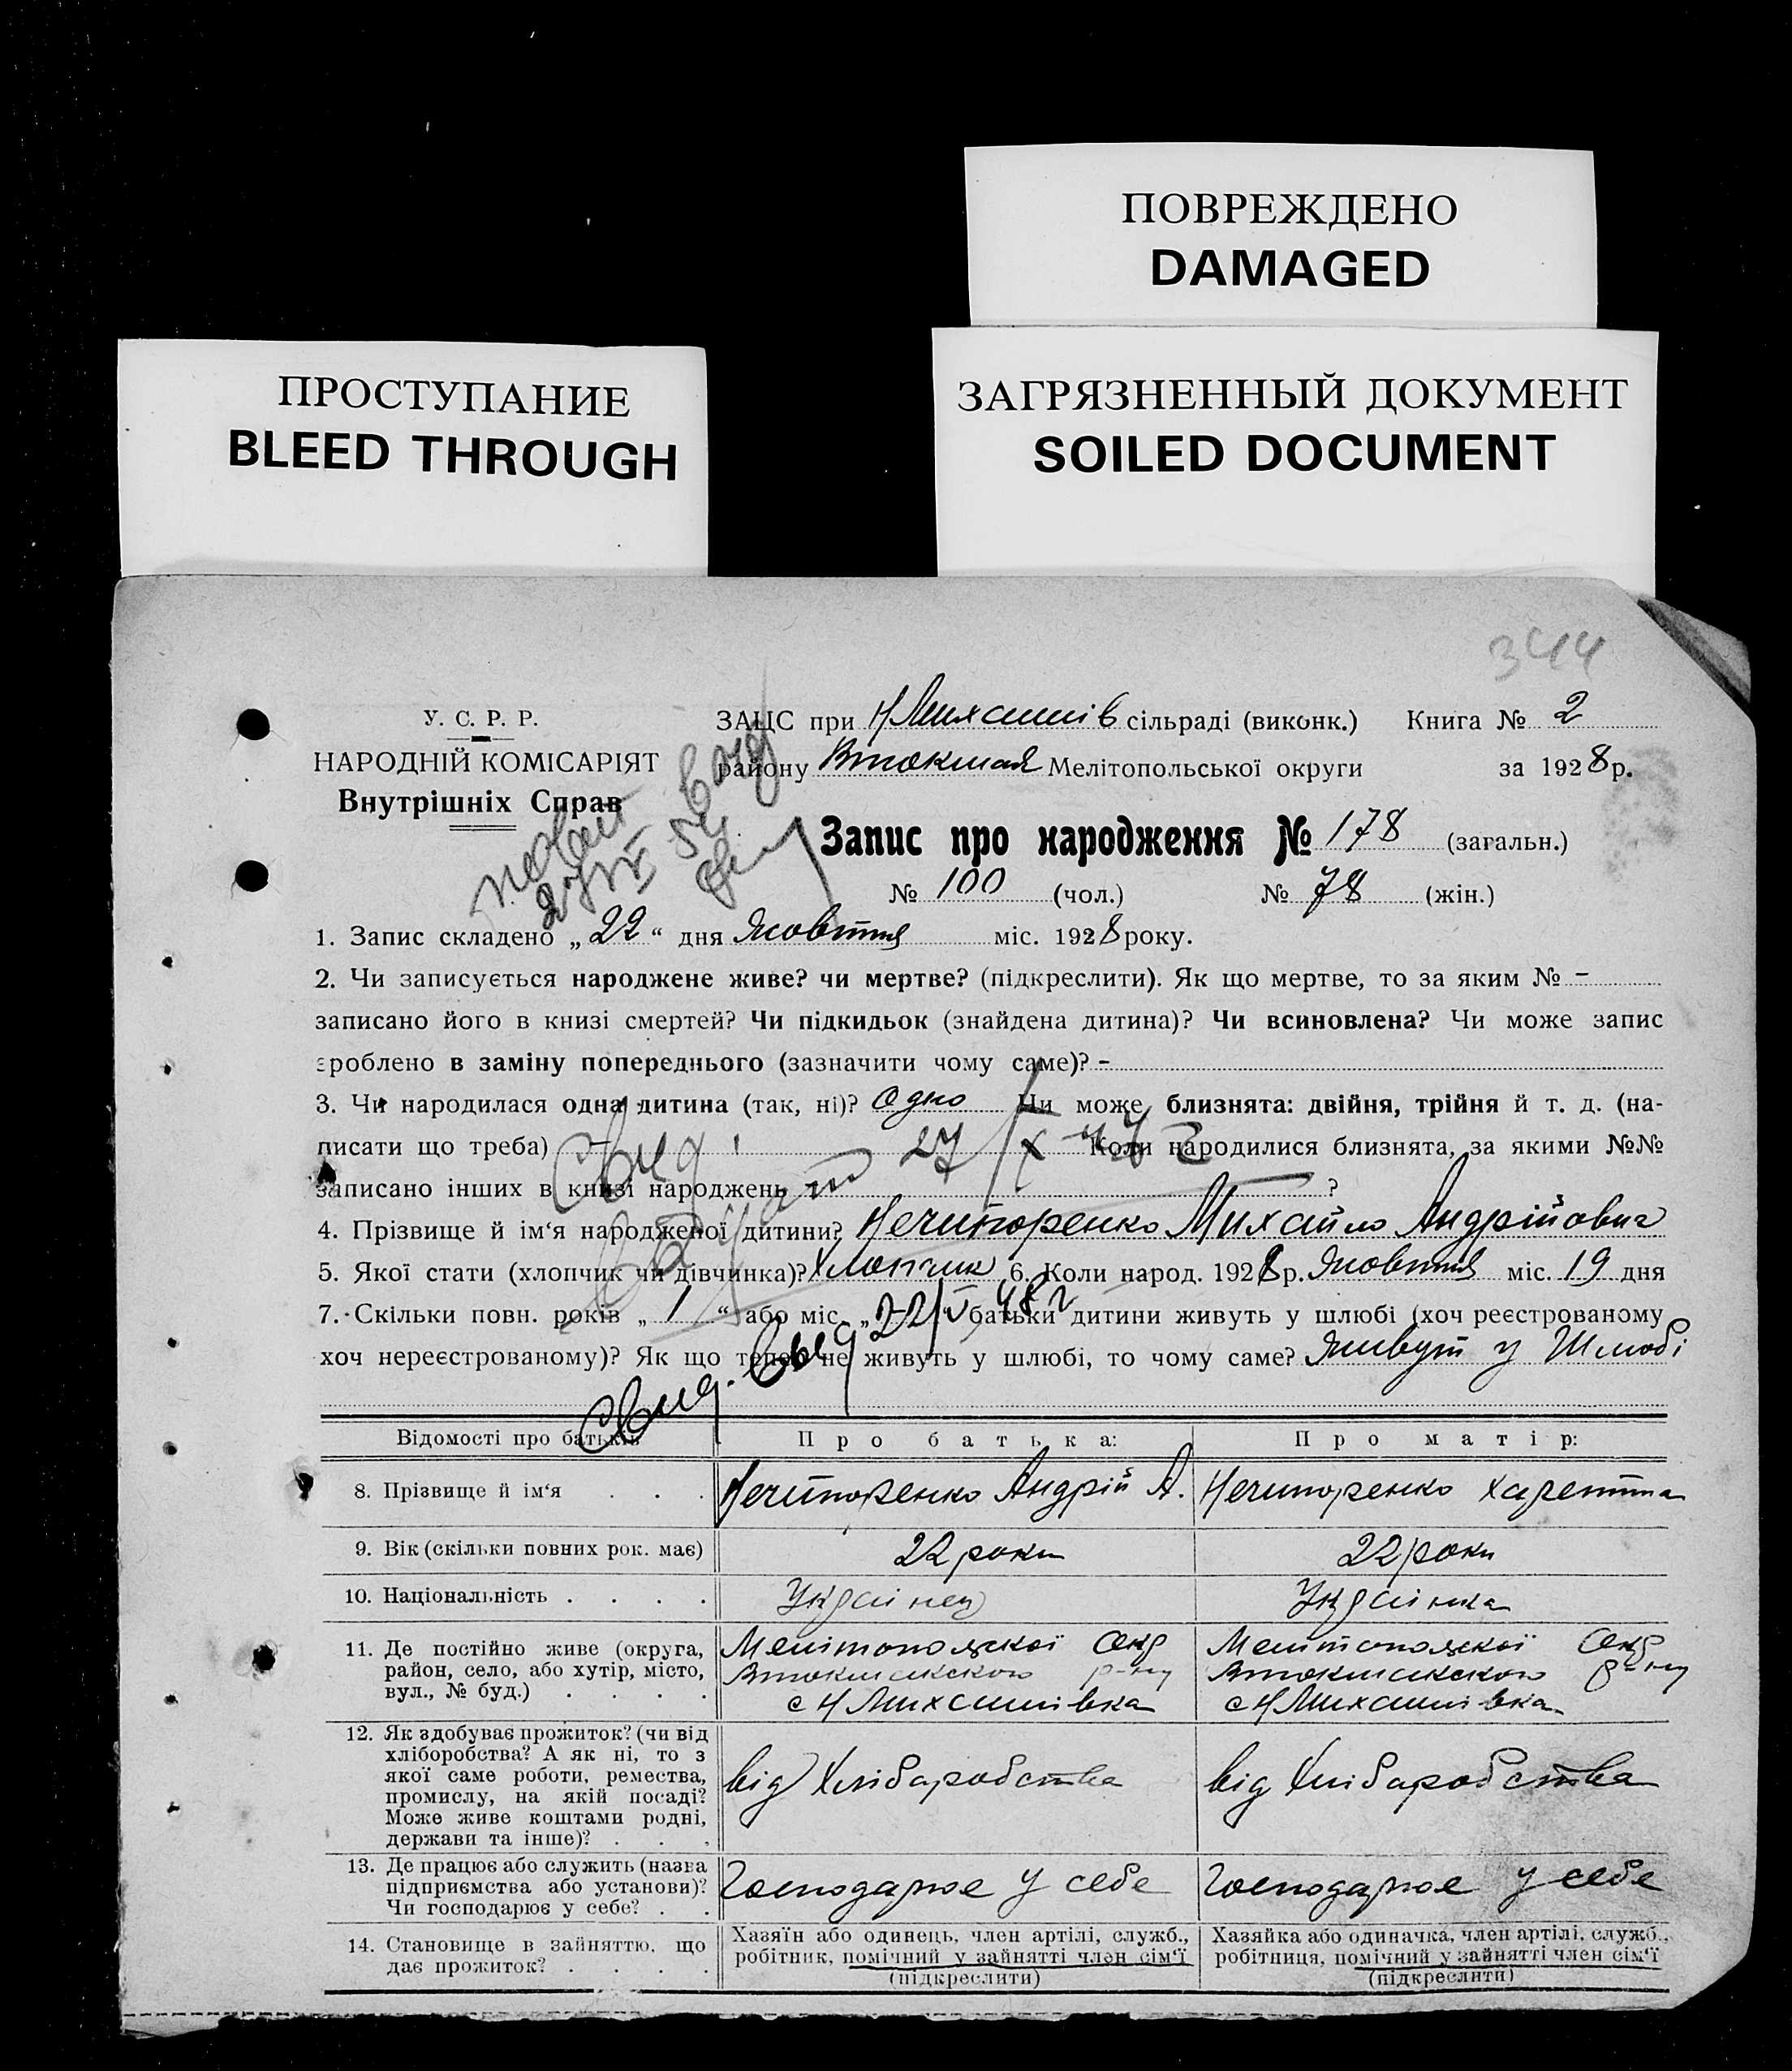 ПОВРЕЖДЕНО
DAMAGED
ПРОСТУПАНИЕ
BLEED THROUGH
ЗАГРЯЗНЕННЫЙ ДОКУМЕНТ
SOILED DOCUMENT
344
У. С. Р. Р.
НАРОДНІЙ КОМІСАРІЯТ
Внутрішніх Справ
ЗАЦС при Н Михайлів сільраді (виконк.) Книга № 2
району Втокмак Мелітопольської округи за 1928 р.
Запис про народження № 178 (загальн.)
№ 100 (чол.) № 78 (жін.)
1. Запис складено „22“ дня Жовтня міс. 1928 року.
2. Чи записується народжене живе? чи мертве? (підкреслити). Як що мертве, то за яким № -
записано його в книзі смертей? Чи підкидьок (знайдена дитина)? Чи всиновлена? Чи може запис
зроблено в заміну попереднього (зазначити чому саме)? -
3. Чи народилася одна дитина (так, ні)? Одно Чи може близнята: двійня, трійня й т. д. (на-
писати що треба) Коли народилися близнята, за якими №№
записано інших в книзі народжень ?
4. Прізвище й ім‘я народженої дитини? Нечипоренко Михайло Андрійович
5. Якої стати (хлопчик чи дівчинка)? Хлопчик 6. Коли народ. 1928 р. Жовтня міс. 19 дня
7. Скільки повн. років „ 1 “ або міс. „ батьки дитини живуть у шлюбі (хоч реєстрованому
хоч нереєстрованому)? Як що тепер не живуть у шлюбі, то чому саме? Живут у Шлюбі
Відомості про батьків Про батька: Про матір:
8. Прізвище й ім‘я . . . Нечипоренко Андрій А. Нечипоренко Харетина
9. Вік (скільки повних рок. має) 22 роки 22 роки
10. Національність . . . . Українец Українка
11. Де постійно живе (округа, Мелітопольскої Окр Мелітопольскої Окр
район, село, або хутір, місто, Втокмакского р-ну Втокмакского р-ну
вул., № буд.) . . . . с Н Михайлівка с Н Михайлівка
12. Як здобуває прожиток? (чи від
хліборобства? А як ні, то з
якої саме роботи, ремества, від Хлібаробства від Хлібаробства
промислу, на якій посаді?
Може живе коштами родні,
держави та інше)? . . .
13. Де працює або служить (назва
підприємства або установи)? Господарює у себе Господарює у себе
Чи господарює у себе? . .
14. Становище в зайняттю, що Хазяїн або одинець, член артілі, служб., Хазяйка або одиначка, член артілі, служб.,
дає прожиток? . . . . робітник, помічний у зайнятті член сім‘ї робітниця, помічний у зайнятті член сім‘ї
(підкреслити) (підкреслити)